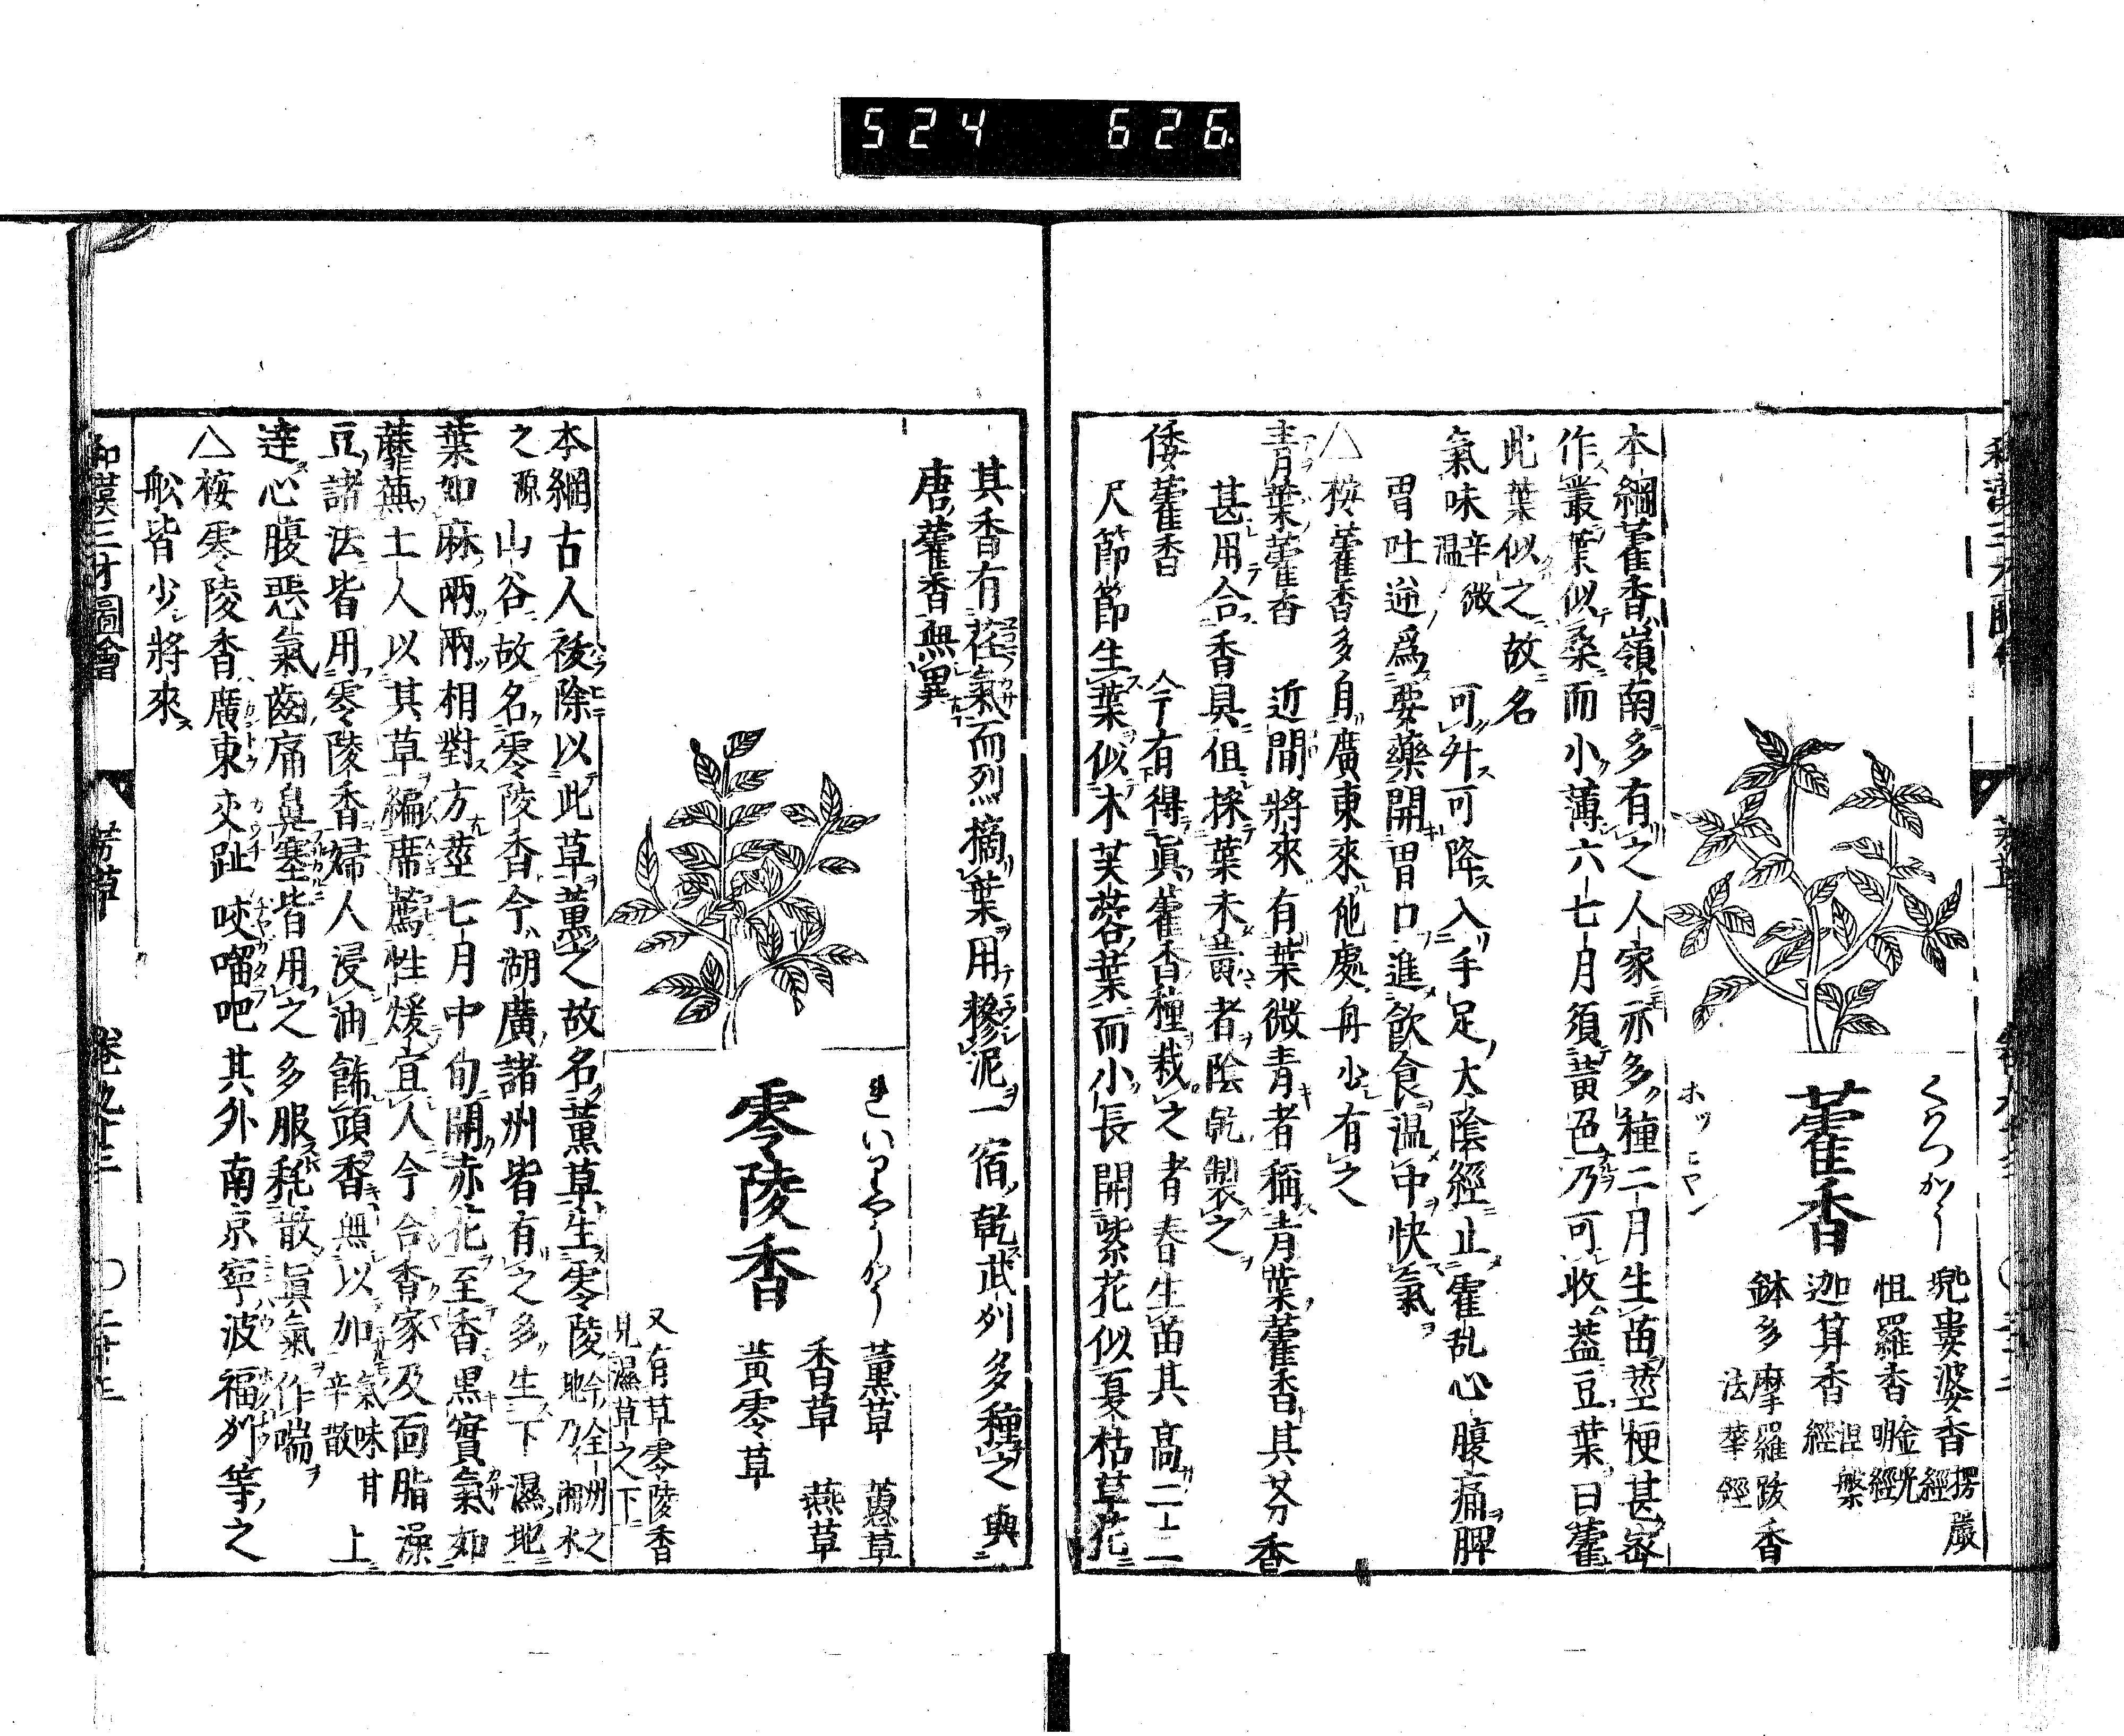 524 626
くわつかう
藿香
ホッ ヒヤン
兜婁婆香 楞嚴經
怛羅香 金光明經
迦算香 涅槃經
鉢多摩羅跋香 法華經
本綱藿香嶺南多有之人家亦多種二月生苗莖梗甚密
作叢葉似桑而小薄六七月須黃色乃可收葢豆葉曰藿
此葉似之故名
氣味辛微温 可升可降入手足太陰經止霍乱心腹痛脾
胃吐逆爲要藥開胃口進飮食温中快氣
△按藿香多自廣東來他處舟少有之
青葉藿香 近間將來有葉微青者稱青葉藿香其芬香
甚用合香具但採葉未黃者陰乾製之
倭藿香 今有得眞藿香種栽之者春生苗其高二三
尺節節生葉似木芙蓉葉而小長開紫花似夏枯草花
其香有花氣而烈摘葉用糝泥一宿乾武州多種之與
唐藿香無異
れいりやうかう
零陵香
薫草 蕙草
香草 燕草
黃零草
又有草零陵香
見濕草之下
本綱古人祓除以此草薫之故名薫草生零陵 今全州之地乃湘水
之源 山谷故名零陵香今湖廣諸州皆有之多生下濕地
葉如麻兩兩相對方莖七月中旬開赤花至香黒實氣如
蘼蕪土人以其草編席薦性煖宜人今合香家及面脂澡
豆諸法皆用零陵香婦人浸油飾頭香無以加 氣味甘辛散 上
達心腹惡氣齒痛鼻塞皆用之多服耗散眞氣作喘
△按零陵香廣東交趾咬𠺕吧其外南京寧波福州等之
舩皆少將來
和漢三才圖會 芳草 卷九十三